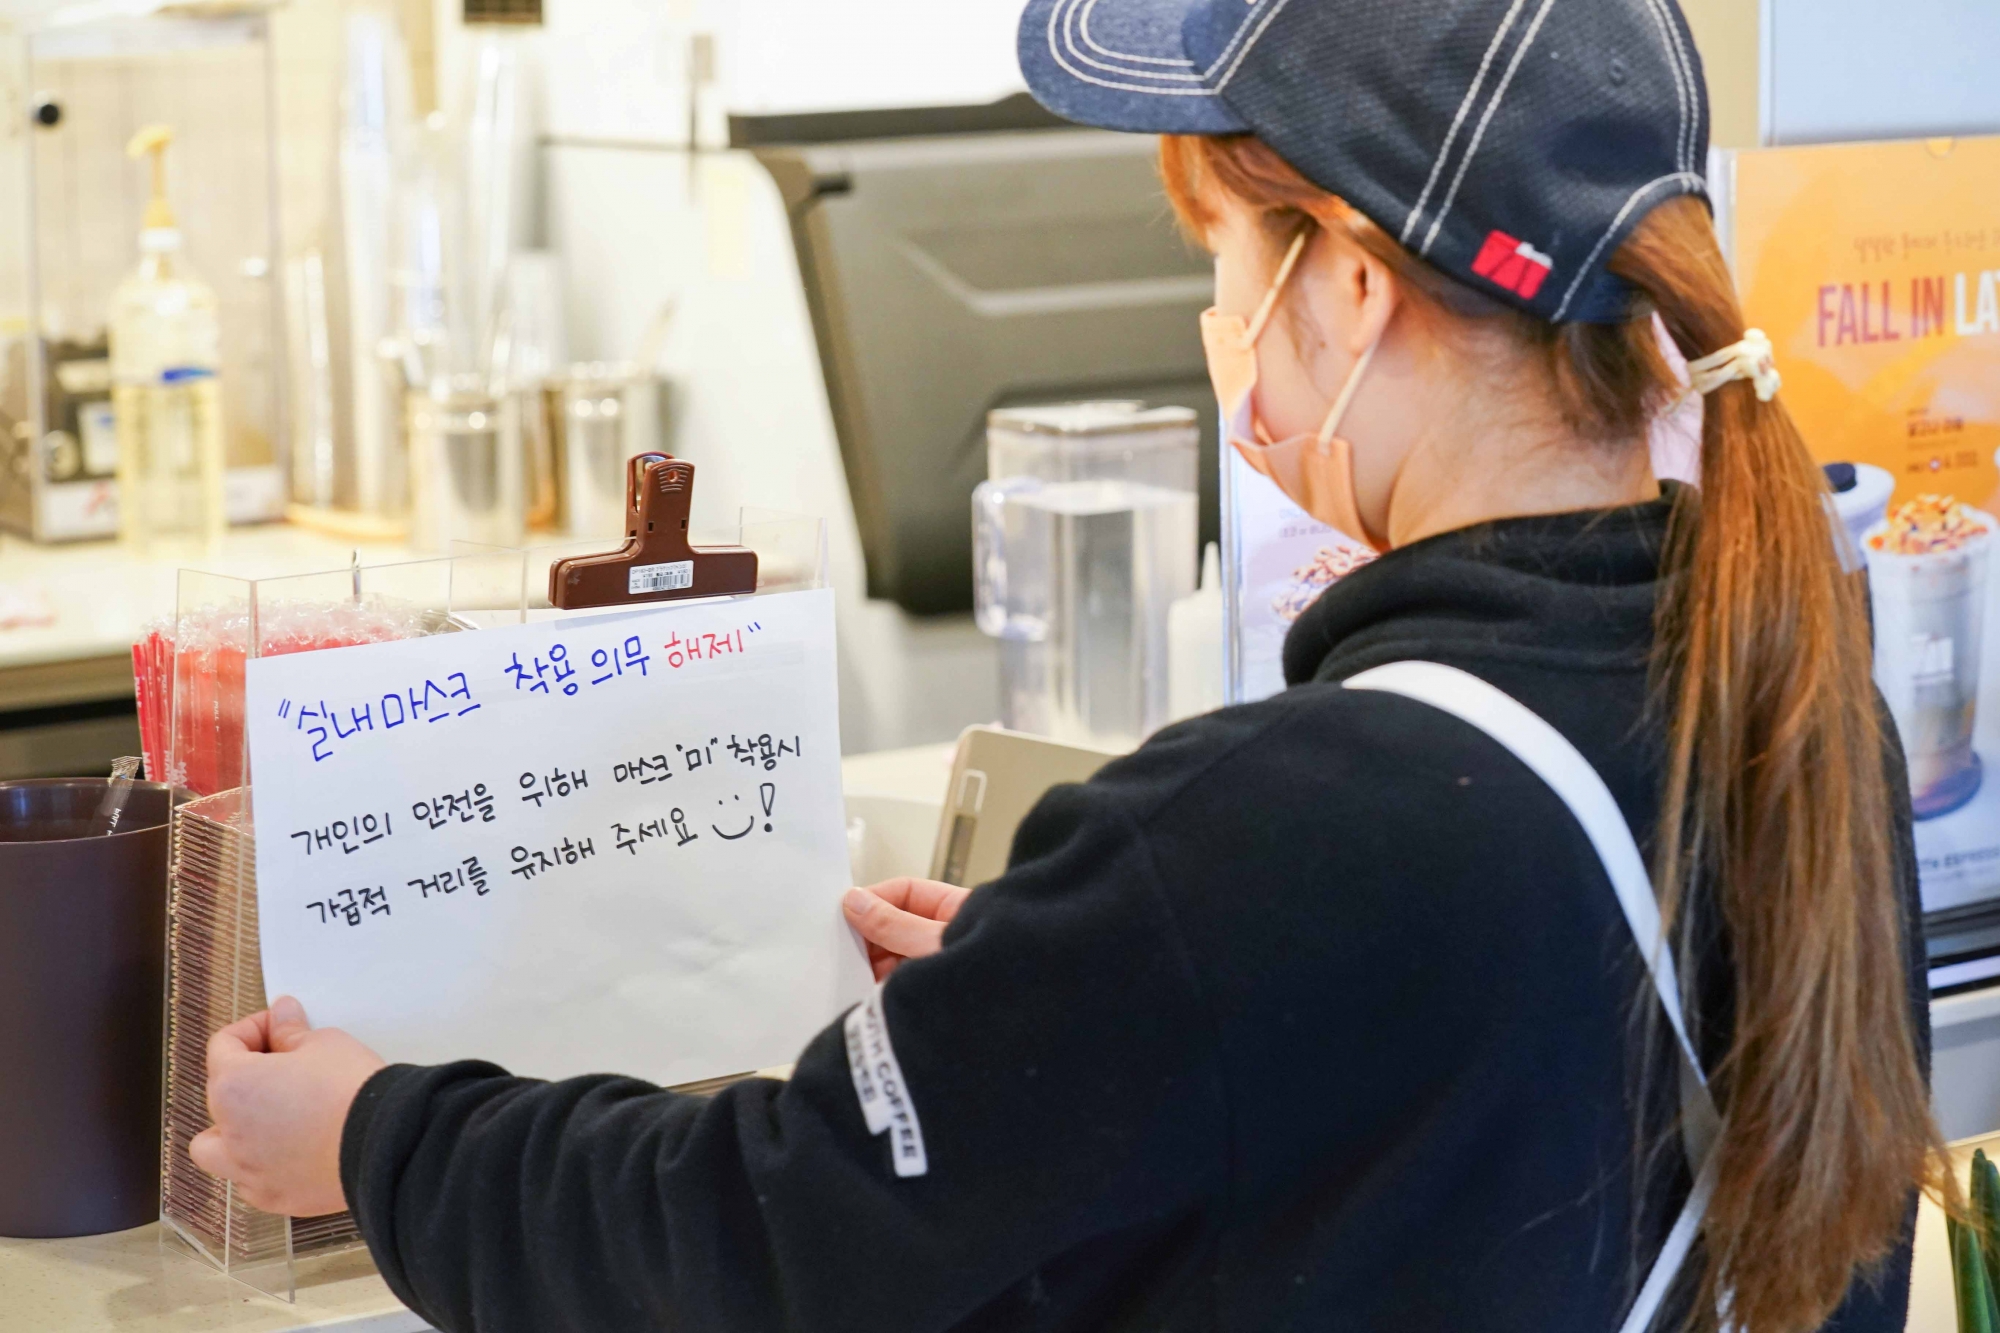 "실내마스크 착용 의무 해제"
개인의 안전을 위해 마스크 "미" 착용시
가급적 거리를 유지해 주세요 !
FALL IN
COFFEE